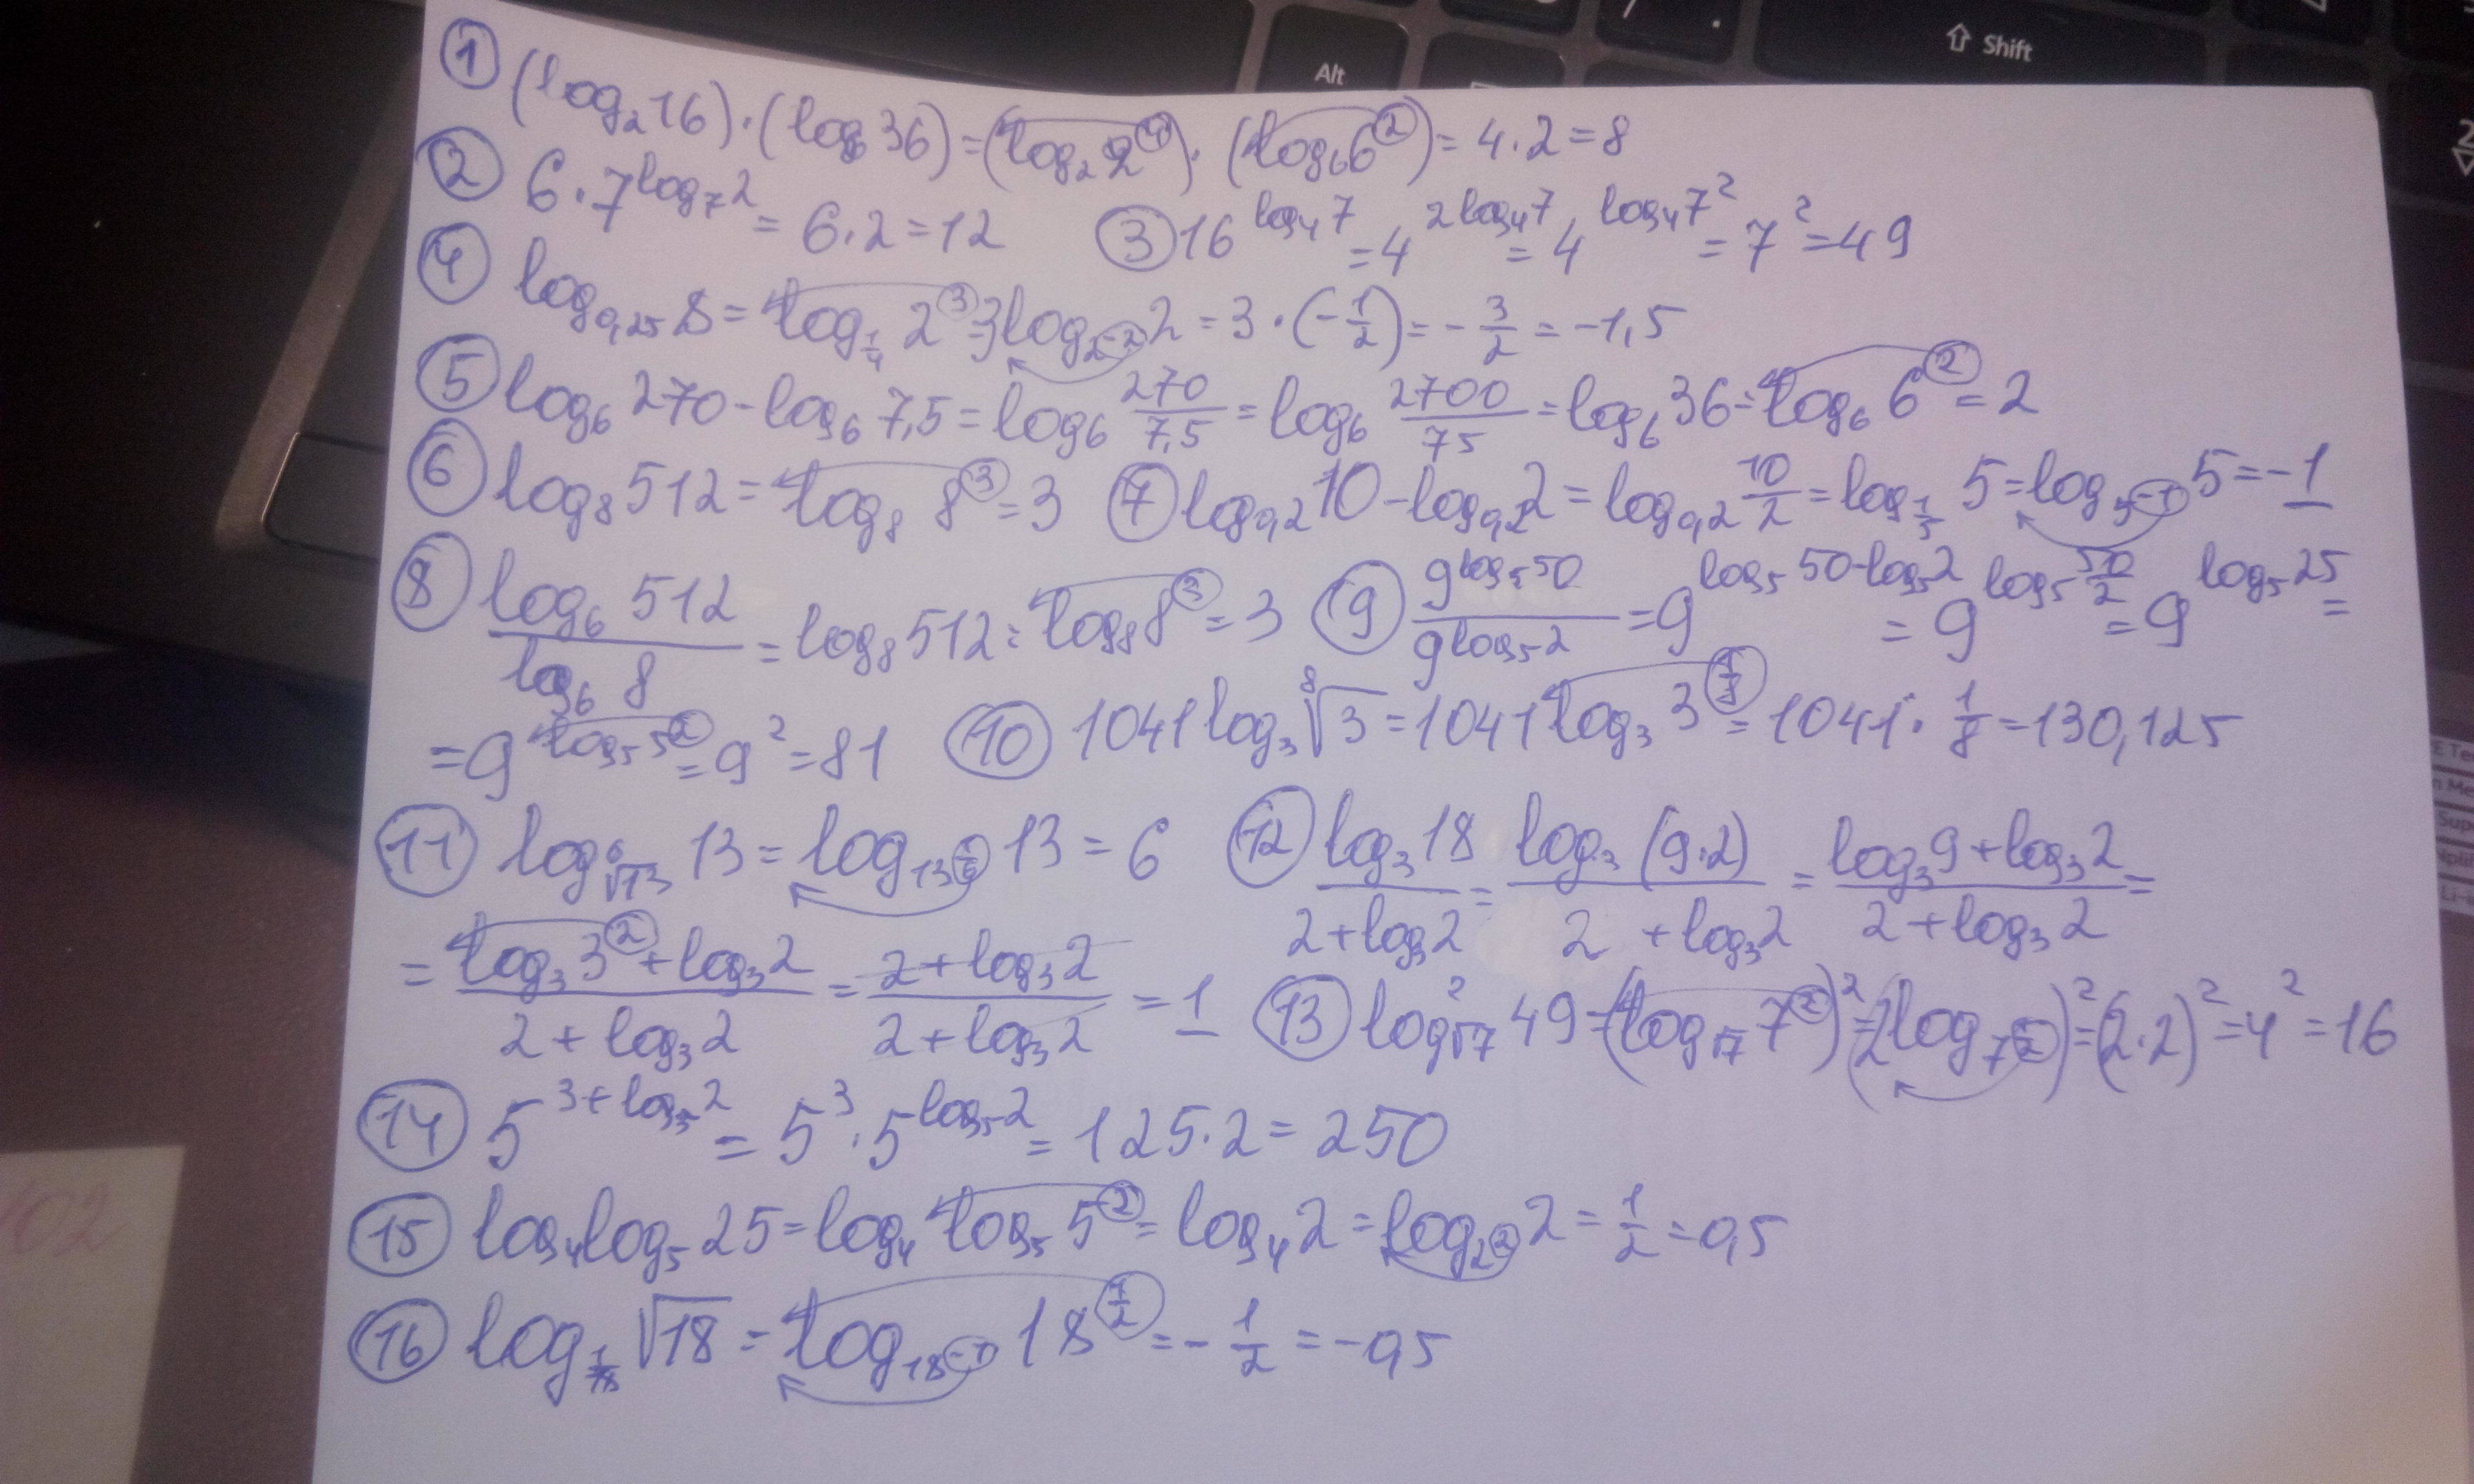 Alt
⇧ Shift
① (log₂16)·(log₆36)=(log₂2⁴)·(log₆6²)=4·2=8
② 6·7^(log₇2)=6·2=12 ③ 16^(log₄7)=4^(2log₄7)=4^(log₄7²)=7²=49
④ log_(0,25)8=log_(1/4)2³=3log_(2⁻²)2=3·(-1/2)=-3/2=-1,5
⑤ log₆270-log₆7,5=log₆270/7,5=log₆2700/75=log₆36=log₆6²=2
⑥ log₈512=log₈8³=3 ⑦ log_(0,2)10-log_(0,2)2=log_(0,2)10/2=log_(1/5)5=log_(5⁻¹)5=-1
⑧ log₆512/log₆8=log₈512=log₈8³=3 ⑨ 9^(log₅50)/9^(log₅2)=9^(log₅50-log₅2)=9^(log₅50/2)=9^(log₅25)=
=9^(log₅5²)=9²=81 ⑩ 1041log₃⁸√3=1041log₃3^(1/8)=1041·1/8=130,125
⑪ log_(⁶√13)13=log_(13^(1/6))13=6 ⑫ log₃18/(2+log₃2)=log₃(9·2)/(2+log₃2)=(log₃9+log₃2)/(2+log₃2)=
=(log₃3²+log₃2)/(2+log₃2)=(2+log₃2)/(2+log₃2)=1 ⑬ log²_(√7)49=(log_(√7)7²)²=(2log_(7^(1/2)))²=(2·2)²=4²=16
⑭ 5^(3+log₅2)=5³·5^(log₅2)=125·2=250
⑮ log₄log₅25=log₄log₅5²=log₄2=log_(2²)2=1/2=0,5
⑯ log_(1/18)√18=log_(18⁻¹)18^(1/2)=-1/2=-0,5